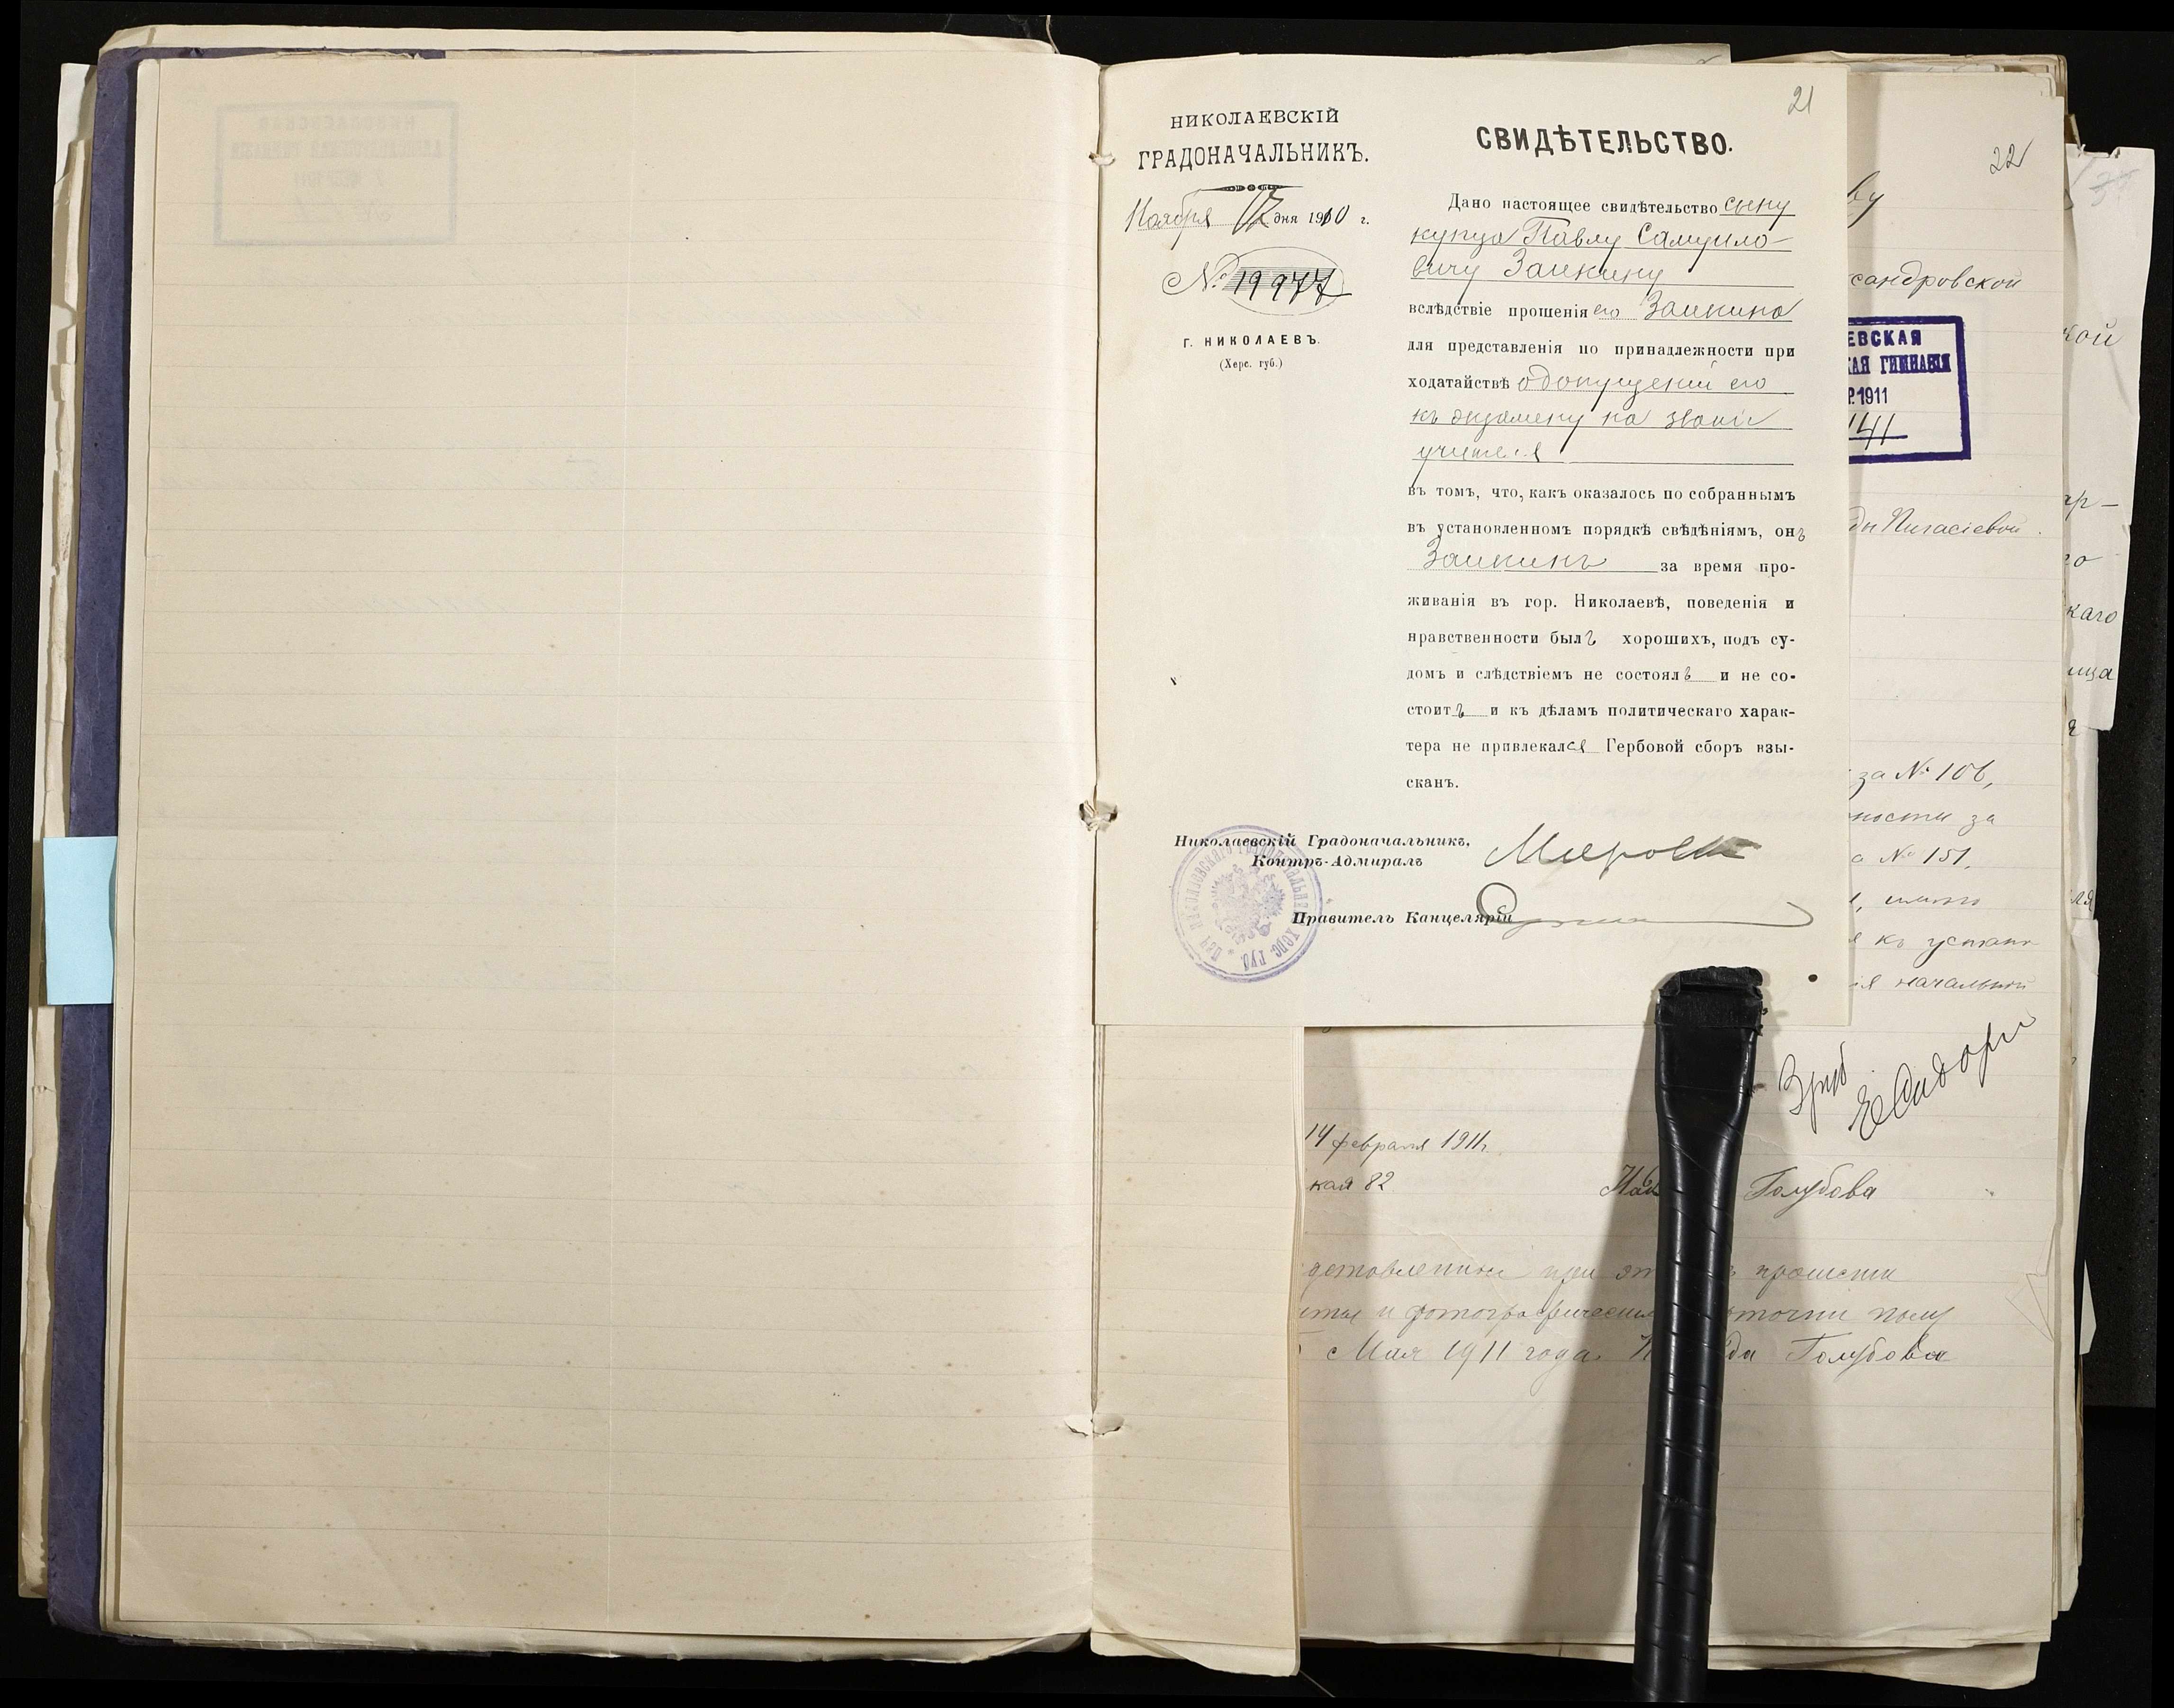 21
НИКОЛАЕВСКІЙ
ГРАДОНАЧАЛЬНИКЪ.
Ноября 12 дня 1910 г.
№ 19977
Г. НИКОЛАЕВЪ.
(Херс. губ.)
СВИДѢТЕЛЬСТВО.
Дано настоящее свидѣтельство сыну
купца Павлу Самуило-
вичу Заикину
вслѣдствіе прошенія его Заикина
для представленія по принадлежности при
ходатайствѣ о допущеніи его
къ экзамену на званіе
учителя
въ томъ, что, какъ оказалось по собраннымъ
въ установленномъ порядкѣ свѣдѣніямъ, онъ
Заикинъ за время про-
живанія въ гор. Николаевѣ, поведенія и
нравственности былъ хорошихъ, подъ су-
домъ и слѣдствіемъ не состоялъ и не со-
стоитъ и къ дѣламъ политическаго харак-
тера не привлекался Гербовой сборъ взы-
сканъ.
Николаевскій Градоначальникъ,
Контръ-Адмиралъ
Правитель Канцеляріи
22
ву
сандровской
ЕВСКАЯ
КАЯ ГИМНАЗІЯ
Р. 1911
141
за № 106,
ности за
а № 151,
къ устано
я начальной
14 февраля 1911 г.
кая 82
Голубова
прошеніи
и фотографическія
Мая 1911 года. Голубова
кой
ар-
го
каго
ица